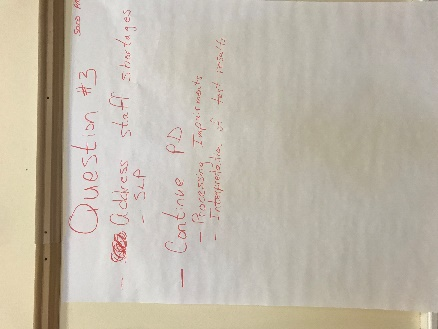 Question #3
- Address staff shortages
- SLP
- Continue PD
- Processing Impairments
- Interpretation of test results